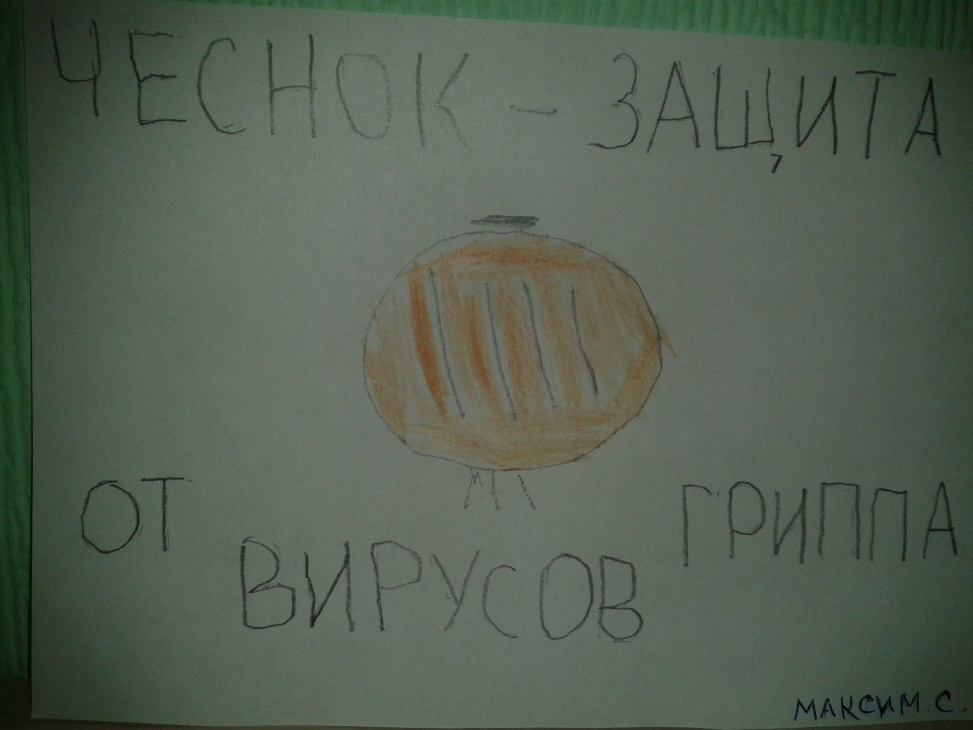 ЧЕСНОК - ЗАЩИТА
ОТ ВИРУСОВ ГРИППА
МАКСИМ. С.